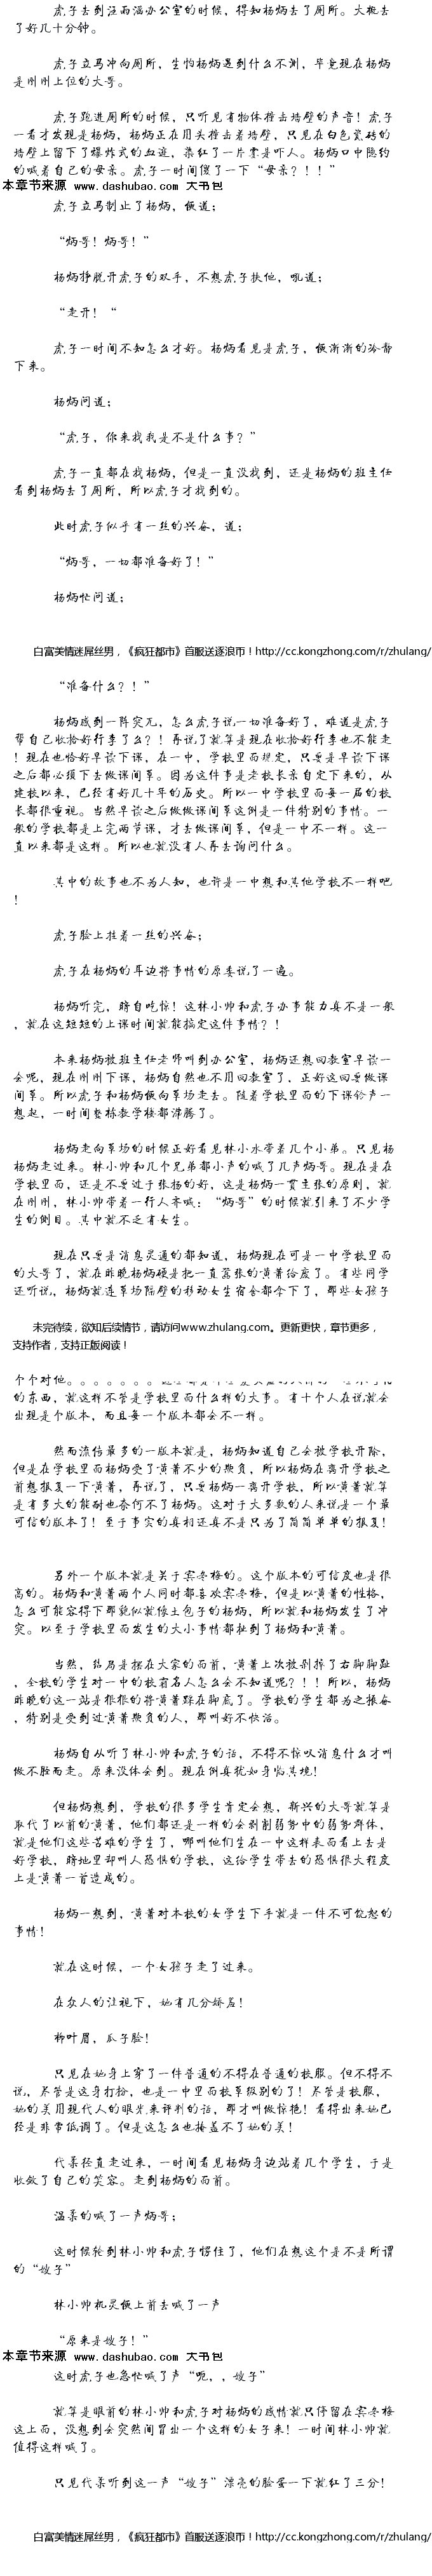 虎子去到汪雨涵办公室的时候，得知杨炳去了厕所。大概去
了好几十分钟。
虎子立马冲向厕所，生怕杨炳遇到什么不测，毕竟现在杨炳
是刚刚上位的大哥。
虎子跑进厕所的时候，只听见有物体撞击墙壁的声音！虎子
一看才发现是杨炳，杨炳正在用头撞击着墙壁，只见在白色瓷砖的
墙壁上留下了爆炸式的血迹，染红了一片霎是吓人。杨炳口中隐约
的喊着自己的母亲。虎子一时间傻了一下“母亲？！！”
本章节来源 www.dashubao.com 大书包
虎子立马制止了杨炳，便道；
“炳哥！炳哥！”
杨炳挣脱开虎子的双手，不想虎子扶他，吼道；
“走开！“
虎子一时间不知怎么才好。杨炳看见是虎子，便渐渐的冷静
下来。
杨炳问道；
“虎子，你来找我是不是什么事？”
虎子一直都在找杨炳，但是一直没找到，还是杨炳的班主任
看到杨炳去了厕所，所以虎子才找到的。
此时虎子似乎有一丝的兴奋，道；
“炳哥，一切都准备好了！”
杨炳忙问道；
白富美情迷屌丝男，《疯狂都市》首服送逐浪币！http://cc.kongzhong.com/r/zhulang/
“准备什么？！”
杨炳感到一阵突兀，怎么虎子说一切准备好了，难道是虎子
帮自己收拾好行李了么？！再说了就算是现在收拾好行李也不能走
！现在也恰好早读下课，在一中，学校里面规定，只要是早读下课
之后都必须下去做课间草。因为这件事是老校长亲自定下来的，从
建校以来，已经有好几十年的历史。所以一中学校里面每一届的校
长都很重视。当然早读之后做做课间草这倒是一件特别的事情。一
般的学校都是上完两节课，才去做课间草，但是一中不一样。这一
直以来都是这样。所以也就没有人再去询问什么。
其中的故事也不为人知，也许是一中想和其他学校不一样吧
！
虎子脸上挂着一丝的兴奋；
虎子在杨炳的耳边将事情的原委说了一遍。
杨炳听完，暗自吃惊！这林小帅和虎子办事能力真不是一般
，就在这短短的上课时间就能搞定这件事情？！
本来杨炳被班主任老师叫到办公室，杨炳还想回教室早读一
会呢，现在刚刚下课，杨炳自然也不用回教室了，正好这回要做课
间草。所以虎子和杨炳便向草场走去。随着学校里面的下课铃声一
想起，一时间整栋教学楼都沸腾了。
杨炳走向草场的时候正好看见林小水带着几个小弟。只见杨
杨炳走过来。林小帅和几个兄弟都小声的喊了几声炳哥。现在是在
学校里面，还是不要过于张扬的好，这是杨炳一贯主张的原则，就
在刚刚，林小帅带着一行人齐喊：“炳哥”的时候就引来了不少学
生的侧目。其中就不乏有女生。
现在只要是消息灵通的都知道，杨炳现在可是一中学校里面
的大哥了，就在昨晚杨炳硬是把一直嚣张的黄萧给废了。有些同学
还听说，杨炳就连草场隔壁的移动女生宿舍都拿下了，那些女孩子
未完待续，欲知后续情节，请访问www.zhulang.com。更新更快，章节更多，
支持作者，支持正版阅读！
个个对他。。。。。。
的东西，就这样不管是学校里面什么样的大事。有十个人在说就会
出现是个版本，而且每一个版本都会不一样。
然而流传最多的一版本就是，杨炳知道自己会被学校开除，
但是在学校里面杨炳受了黄萧不少的欺负，所以杨炳在离开学校之
前想报复一下黄萧，再说了，只要杨炳一离开学校，所以黄萧就算
是有多大的能耐也奈何不了杨炳。这对于大多数的人来说是一个最
可信的版本了！至于事实的真相还真不是只为了简简单单的报复！
另外一个版本就是关于宾冬梅的。这个版本的可信度也是很
高的。杨炳和黄萧两个人同时都喜欢宾冬梅，但是以黄萧的性格，
怎么可能容得下那貌似就像土包子的杨炳，所以就和杨炳发生了冲
突。以至于学校里面发生的大小事情都扯到了杨炳和黄萧。
当然，结局是摆在大家的面前，黄萧上次被剁掉了右脚脚趾
，全校的学生对一中的校霸名人怎么会不知道呢？！！所以，杨炳
昨晚的这一站是狠狠的将黄萧踩在脚底了。学校的学生都为之振奋
，特别是受到过黄萧欺负的人，那叫好不快活。
杨炳自从听了林小帅和虎子的话，不得不惊叹消息什么才叫
做不胫而走。原来没体会到。现在倒真犹如身临其境！
但杨炳想到，学校的很多学生肯定会想，新兴的大哥就算是
取代了以前的黄萧，他们都还是一样的会剥削弱势中的弱势群体，
就是他们这些苦难的学生了，哪叫他们生在一中这样表面看上去是
好学校，暗地里却叫人恐惧的学校，这给学生带去的恐惧很大程度
上是黄萧一首造成的。
杨炳一想到，黄萧对本校的女学生下手就是一件不可饶恕的
事情！
就在这时候，一个女孩子走了过来。
在众人的注视下，她有几分娇羞！
柳叶眉，瓜子脸！
只见在她身上穿了一件普通的不得在普通的校服。但不得不
说，尽管是这身打扮，也是一中里面校草级别的了！尽管是校服，
她的美用现代人的眼光来评判的话，那才叫做惊艳！看得出来她已
经是非常低调了。但是这怎么也掩盖不了她的美！
代柔径直走过来，一时间看见杨炳身边站着几个学生，于是
收敛了自己的笑容。走到杨炳的面前。
温柔的喊了一声炳哥；
这时候轮到林小帅和虎子愣住了，他们在想这个是不是所谓
的“嫂子”
林小帅机灵便上前去喊了一声
“原来是嫂子！”
本章节来源 www.dashubao.com 大书包
这时虎子也急忙喊了声“呃，，嫂子”
就算是眼前的林小帅和虎子对杨炳的感情就只停留在宾冬梅
这上面，没想到会突然间冒出一个这样的女子来！一时间林小帅就
值得这样喊了。
只见代柔听到这一声“嫂子”漂亮的脸蛋一下就红了三分！
白富美情迷屌丝男，《疯狂都市》首服送逐浪币！http://cc.kongzhong.com/r/zhulang/